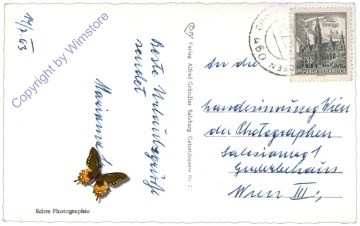 14/2.63
Copyright by Wimstore
Beste Urlaubsgrüße
sendet
Marianne
Echte Photographie
Verlag Alfred Gründler Salzburg Getreidegasse Nr.
490
An die
Landesinnung Wien
der Photographen
Salesianerg 1
Gewerbehaus
Wien III.